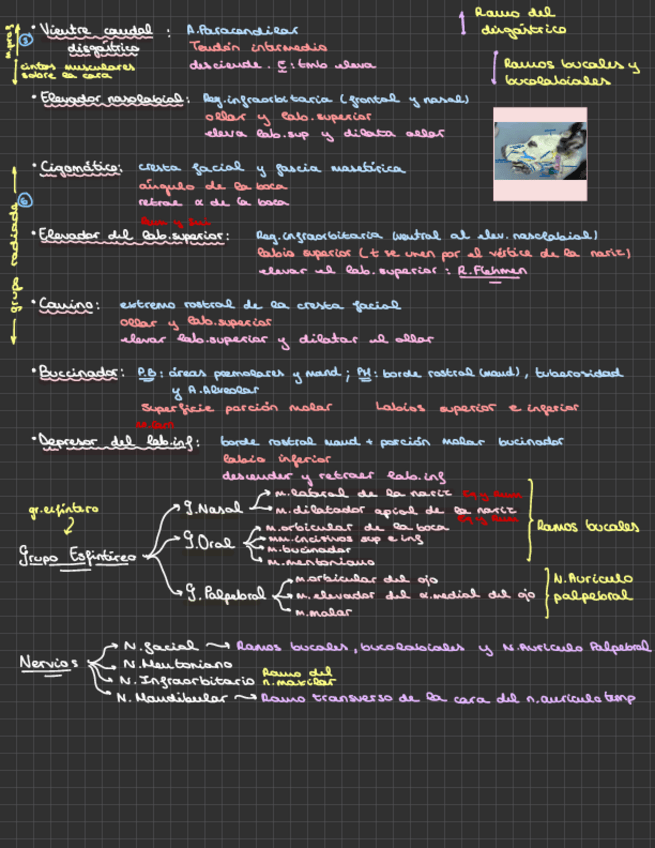 Ramo del
digástrico
m. prof
③
• Vientre caudal : A. Paracondilar
disgáitrico Tendón intermedio
desciende.
cintas musculares
sobre la cara
Ramos bucales y
bucolabiales
• Elevador nasolabial: Reg. infraorbitaria (frontal y nasal)
ollar y lab. superior
eleva lab. sup y dilata ollar
grupo radiado
⑥
• Cigomático: cresta facial y fascia masetérica
ángulo de la boca
retrae α de la boca
• Elevador del lab. superior: Reg. infraorbitaria (ventral al elev. nasolabial)
labio superior (t se unen por el vértice de la nariz)
elevar el lab. superior : R. Flehmen
• Canino: extremo rostral de la cresta facial
ollar y lab. superior
elevar lab. superior y dilatar el ollar
• Buccinador: P.B: áreas premolares y mand; PM: borde rostral (mand), tuberosidad
y A. Alveolar
superficie porción molar Labios superior e inferior
• Depresor del lab. inf: borde rostral mand + porción molar bucinador
labio inferior
descender y retraer lab. inf
gr. esfíntero
Grupo Esfintéreo
g. Nasal
m. lateral de la nariz
m. dilatador apical de la nariz
g. Oral
m. orbicular de la boca
mm. incisivos sup e inf
m. bucinador
m. mentoniano
Ramos bucales
g. Palpebral
m. orbicular del ojo
m. elevador del α. medial del ojo
m. malar
N. Aurículo
palpebral
Nervios
N. facial → Ramos bucales, bucolabiales y N. Aurículo Palpebral
N. Mentoniano
N. Infraorbitario Ramo del
n. maxilar
N. Mandibular → Ramo transverso de la cara del n. aurículo temp